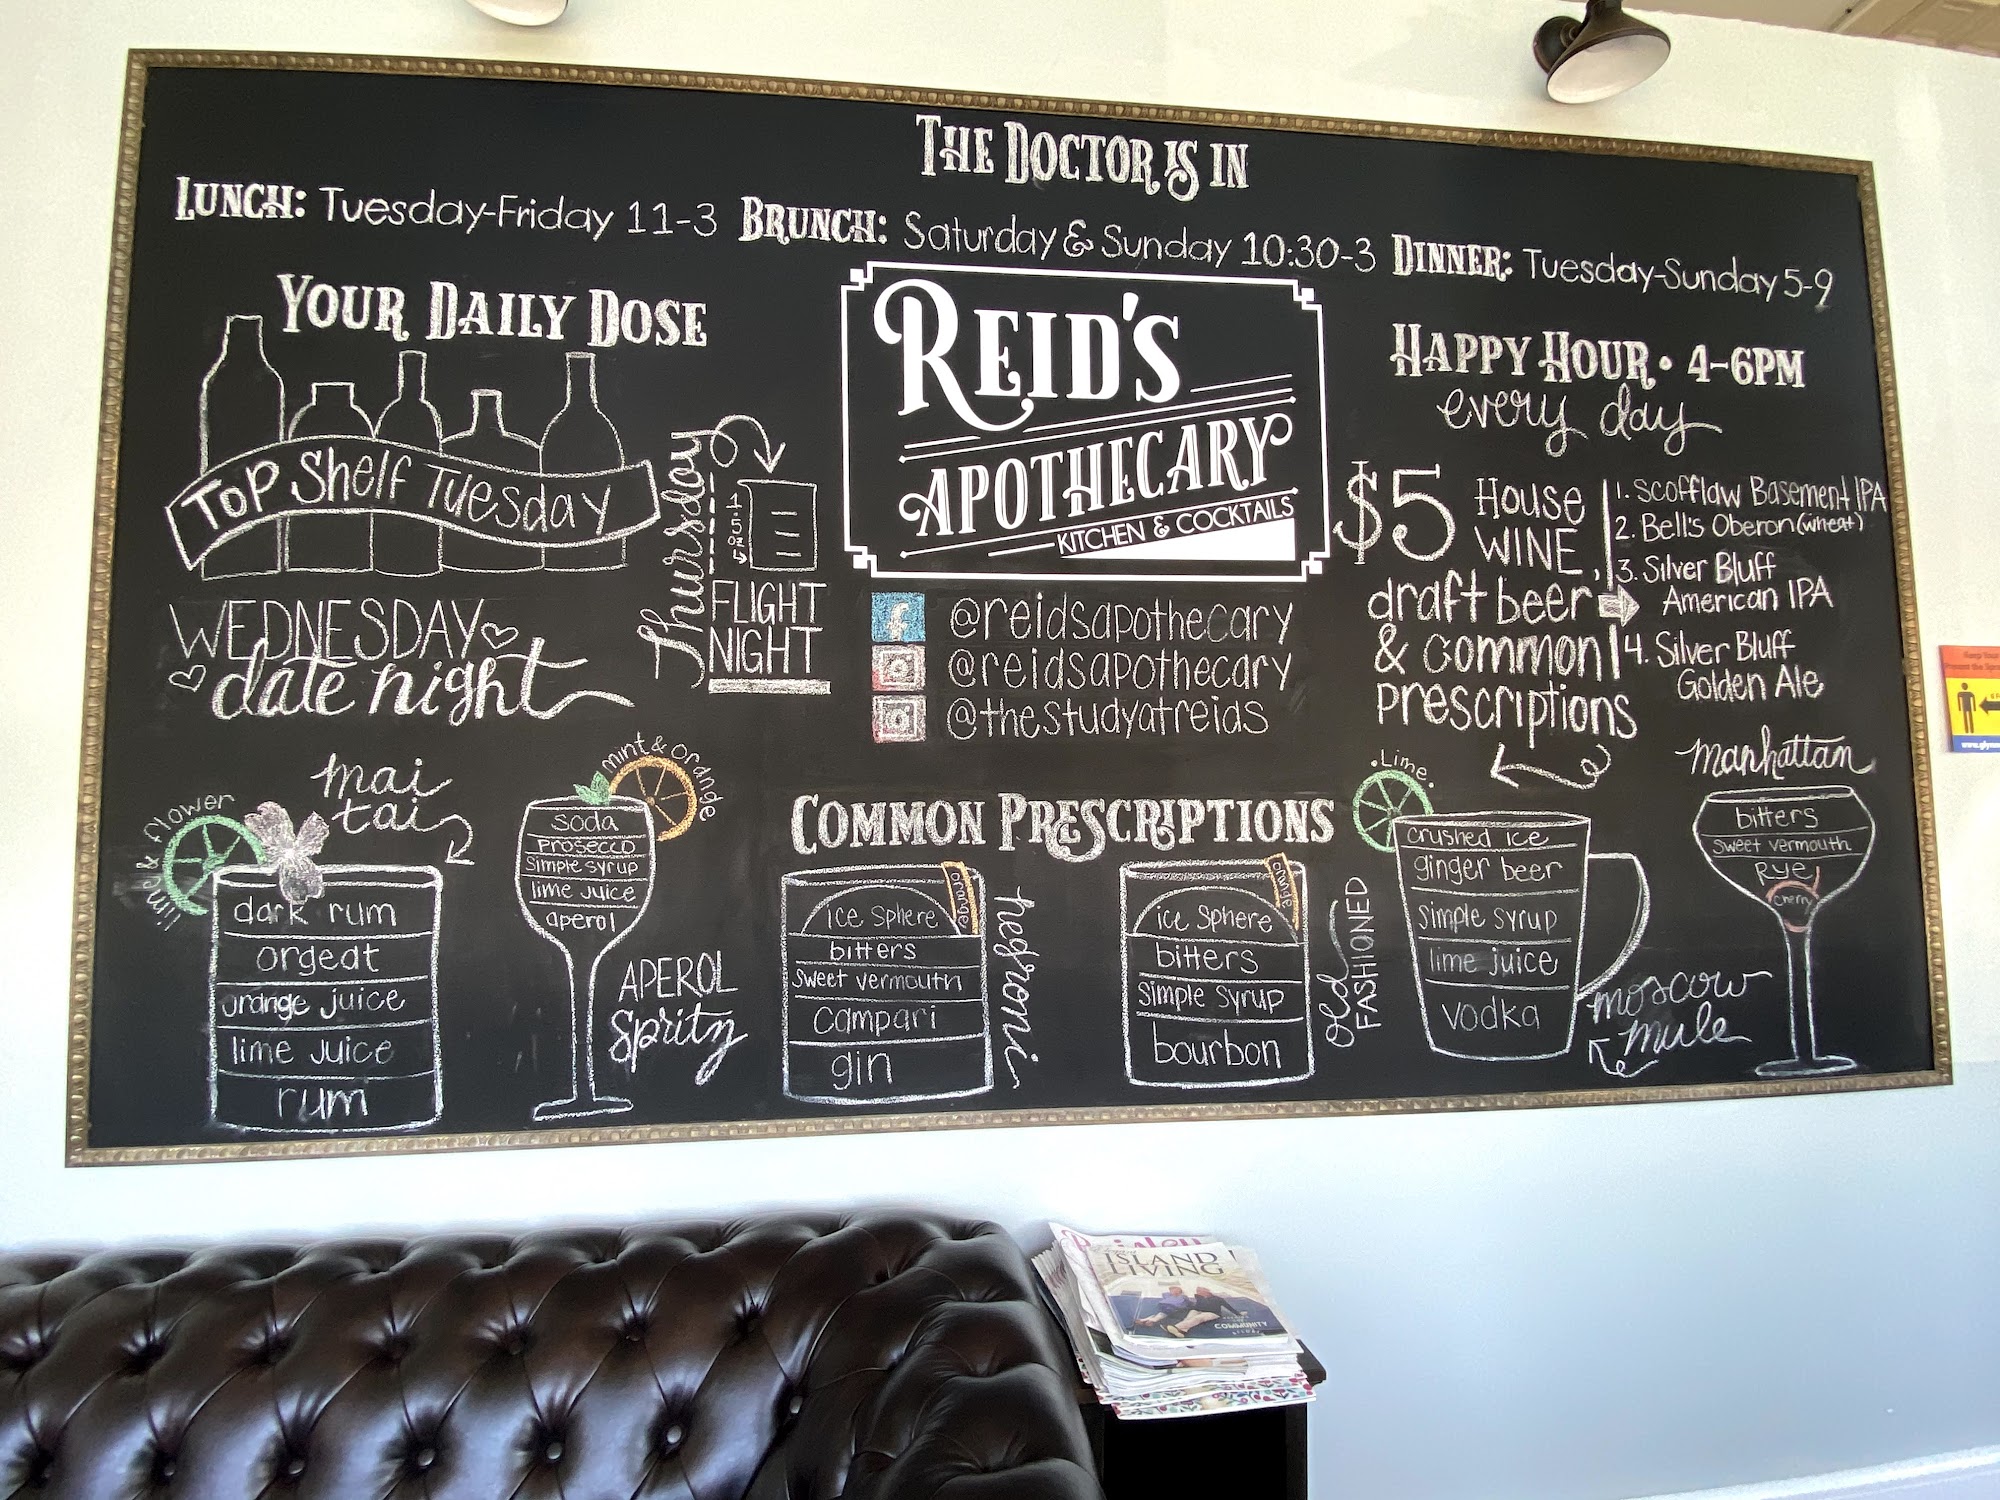 THE DOCTOR IS IN
LUNCH: Tuesday-Friday 11-3 BRUNCH: Saturday & Sunday 10:30-3 DINNER: Tuesday-Sunday 5-9
YOUR DAILY DOSE
TOP Shelf Tuesday
WEDNESDAY
date night
Thursday
1.5 oz
FLIGHT
NIGHT
REID'S
APOTHECARY
KITCHEN & COCKTAILS
f @reidsapothecary
@reidsapothecary
@thestudyatreids
HAPPY HOUR • 4-6PM
every day
$5 House
WINE,
draft beer
& common
prescriptions
1. Scofflaw Basement IPA
2. Bell's Oberon (wheat)
3. Silver Bluff
American IPA
4. Silver Bluff
Golden Ale
COMMON PRESCRIPTIONS
mai
tai
lime & flower
dark rum
orgeat
orange juice
lime juice
rum
mint & orange
soda
prosecco
simple syrup
lime juice
aperol
APEROL
Spritz
orange
ice sphere
bitters
sweet vermouth
campari
gin
negroni
orange
ice sphere
bitters
simple syrup
bourbon
old
FASHIONED
Lime
crushed ice
ginger beer
simple syrup
lime juice
vodka
moscow
mule
manhattan
bitters
sweet vermouth
Rye
cherry
ISLAND
LIVING
COMMUNITY